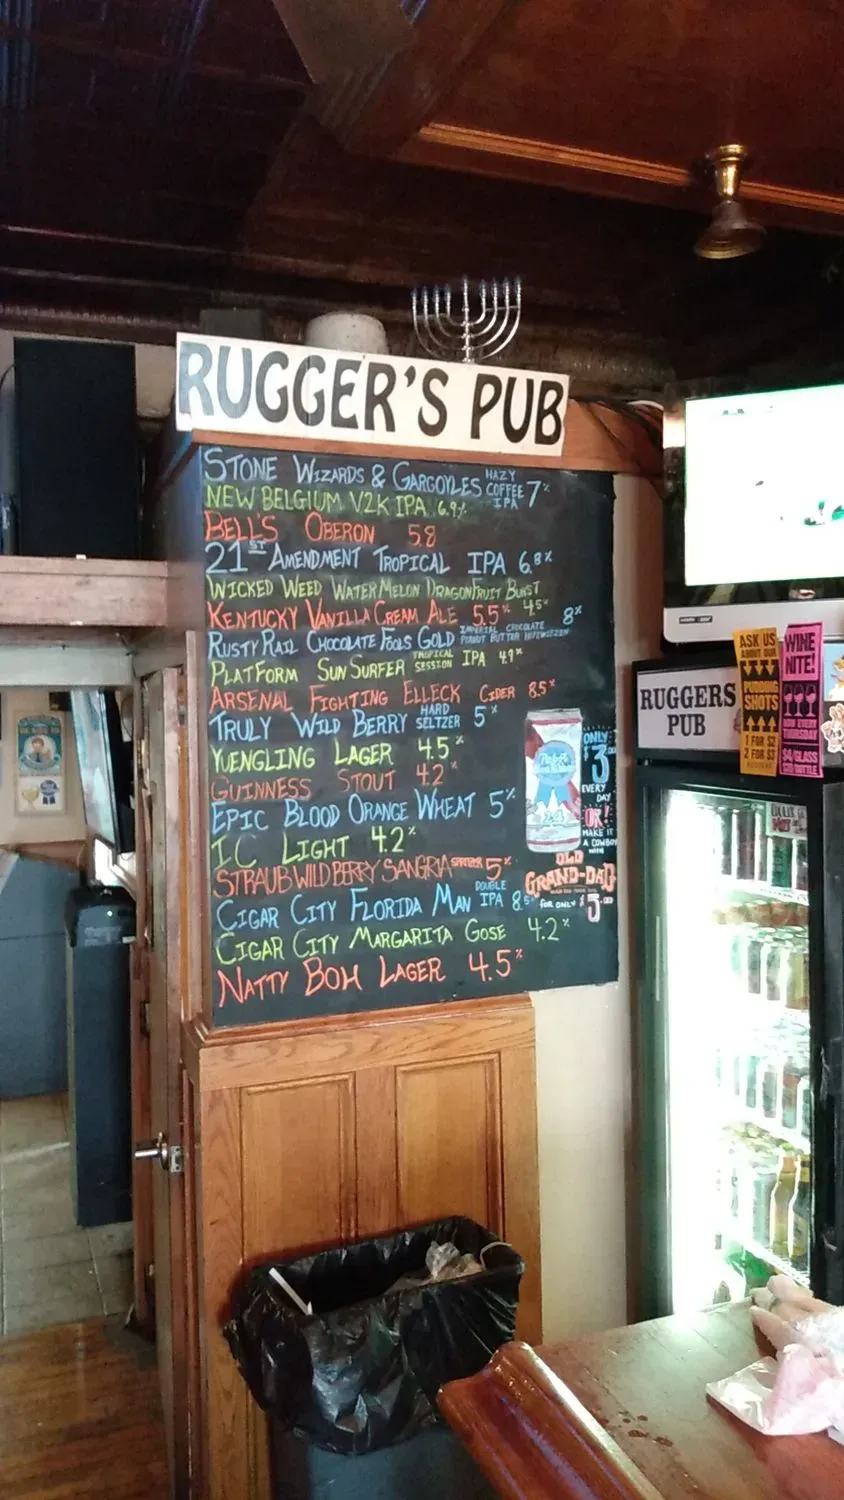 RUGGER'S PUB
STONE WIZARDS & GARGOYLES HAZY COFFEE IPA 7%
NEW BELGIUM V2K IPA 6.9%
BELL'S OBERON 5.8
21ST AMENDMENT TROPICAL IPA 6.8%
WICKED WEED WATERMELON DRAGONFRUIT BURST 4.5%
KENTUCKY VANILLA CREAM ALE 5.5%
RUSTY RAIL CHOCOLATE FOOLS GOLD IMPERIAL CHOCOLATE PEANUT BUTTER HEFEWEIZEN 8%
PLATFORM SUN SURFER TROPICAL SESSION IPA 4.9%
ARSENAL FIGHTING ELLECK CIDER 8.5%
TRULY WILD BERRY HARD SELTZER 5%
YUENGLING LAGER 4.5%
GUINNESS STOUT 4.2%
EPIC BLOOD ORANGE WHEAT 5%
IC LIGHT 4.2%
STRAUB WILD BERRY SANGRIA SPRITZER 5%
CIGAR CITY FLORIDA MAN DOUBLE IPA 8.5%
CIGAR CITY MARGARITA GOSE 4.2%
NATTY BOH LAGER 4.5%
Pabst Blue Ribbon
24
ONLY
$3
EVERY
DAY
OR!
MAKE IT
A COWBOY
WITH
OLD
GRAND-DAD
FOR ONLY $5.00
RUGGERS
PUB
ASK US
ABOUT OUR
PUDDING
SHOTS
1 FOR $2
2 FOR $3
WINE
NITE!
NOW EVERY
THURSDAY
$4/GLASS
$10 BOTTLE